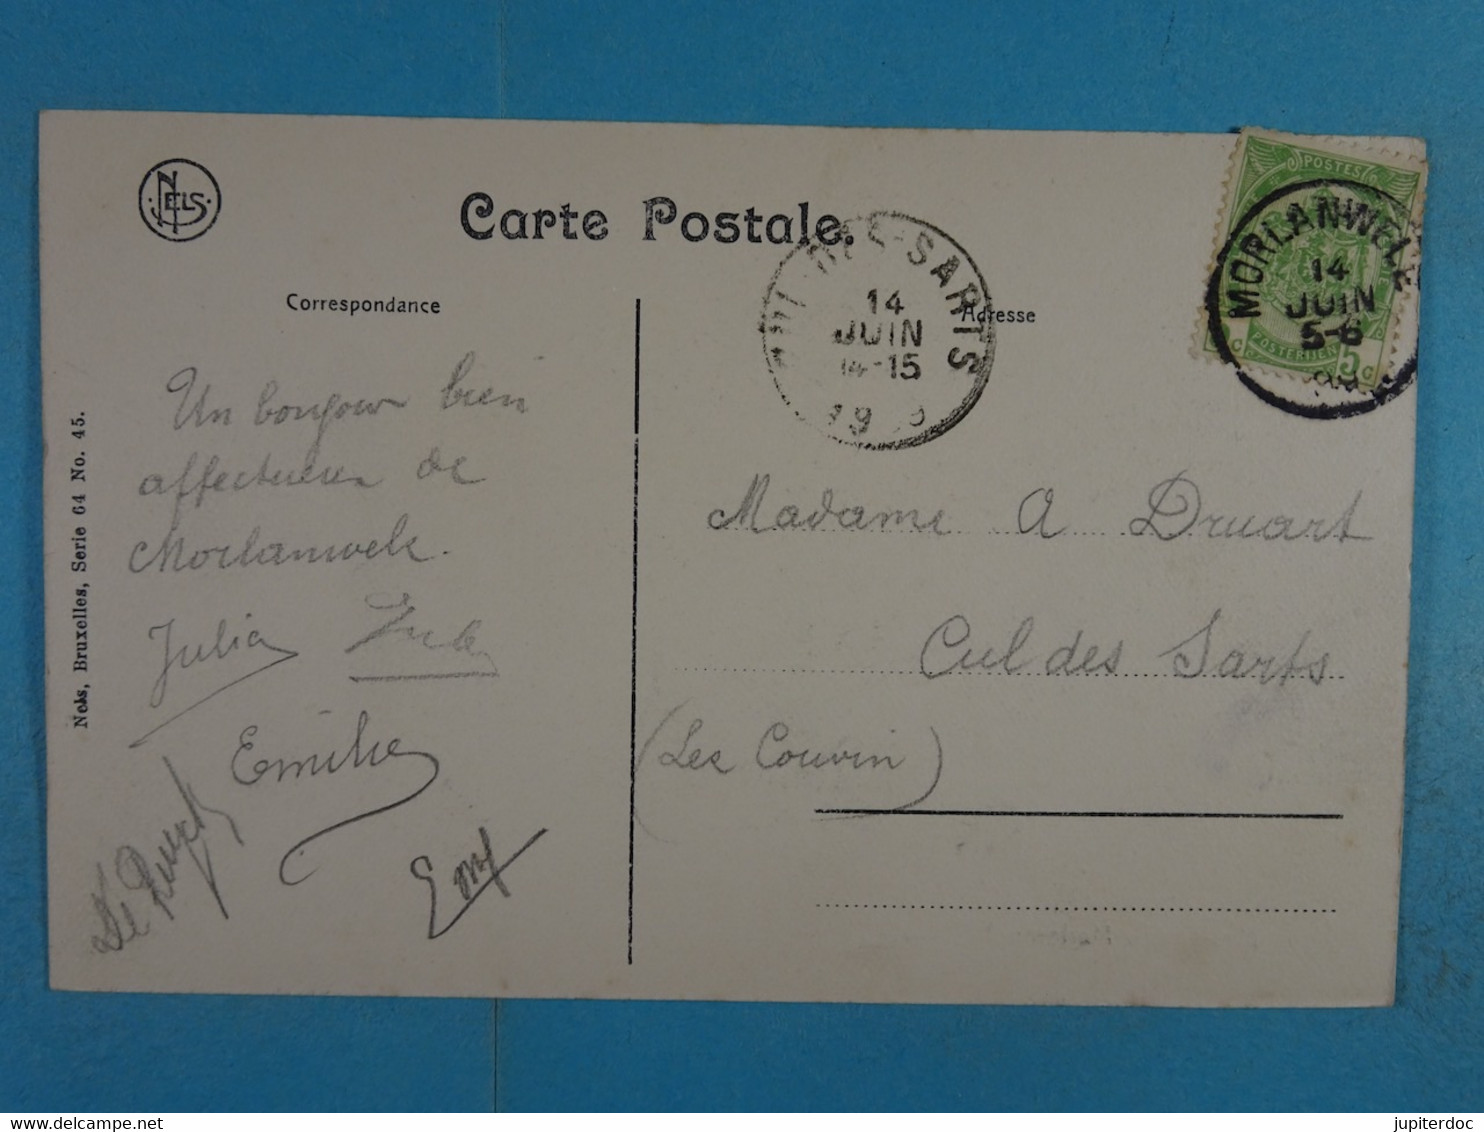 NELS
Carte Postale.
Correspondance
Adresse
DES-SARTS
14
JUIN
14-15
19
POSTES
MORLANWELZ
14
JUIN
5-6
POSTERIJEN
5c
Un bonjour bien
affectueux de
Morlanwelz.
Julia
Emilie
Nels, Bruxelles, Serie 64 No. 45.
Madame A Druart
Cul des Sarts
(Lez Couvin)
delcampe.net
jupiterdoc